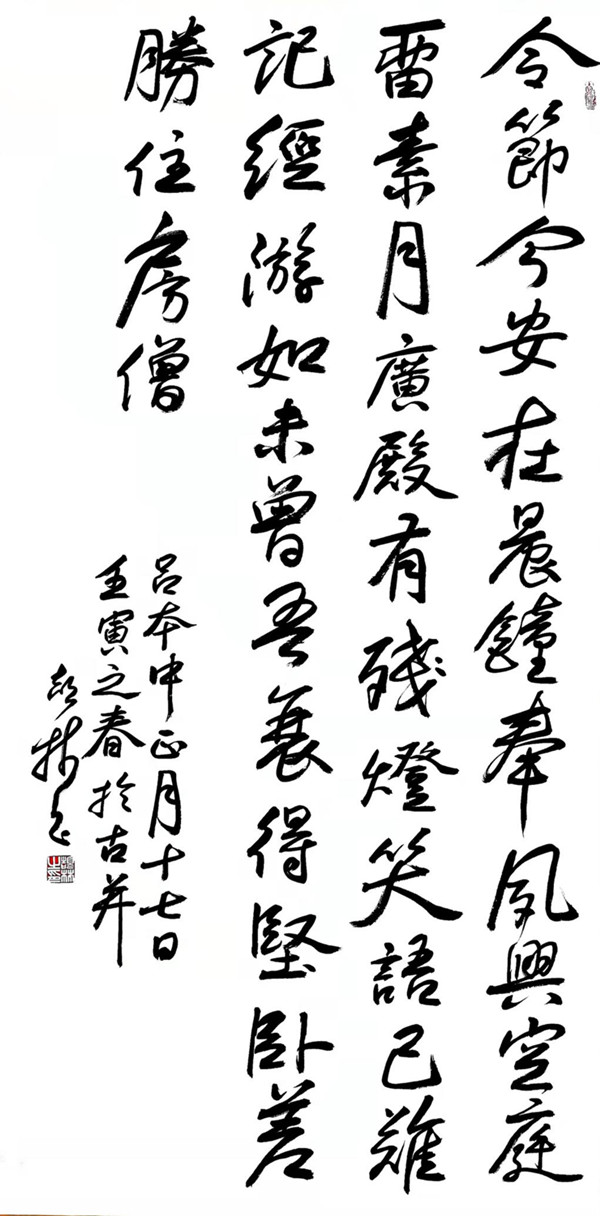 令節今安在晨鐘奉夙興空庭
留素月廣殿有殘燈笑語已難
記經游如未曾吾衰得堅卧差
勝住房僧
吕本中正月十七日
壬寅之春於古并